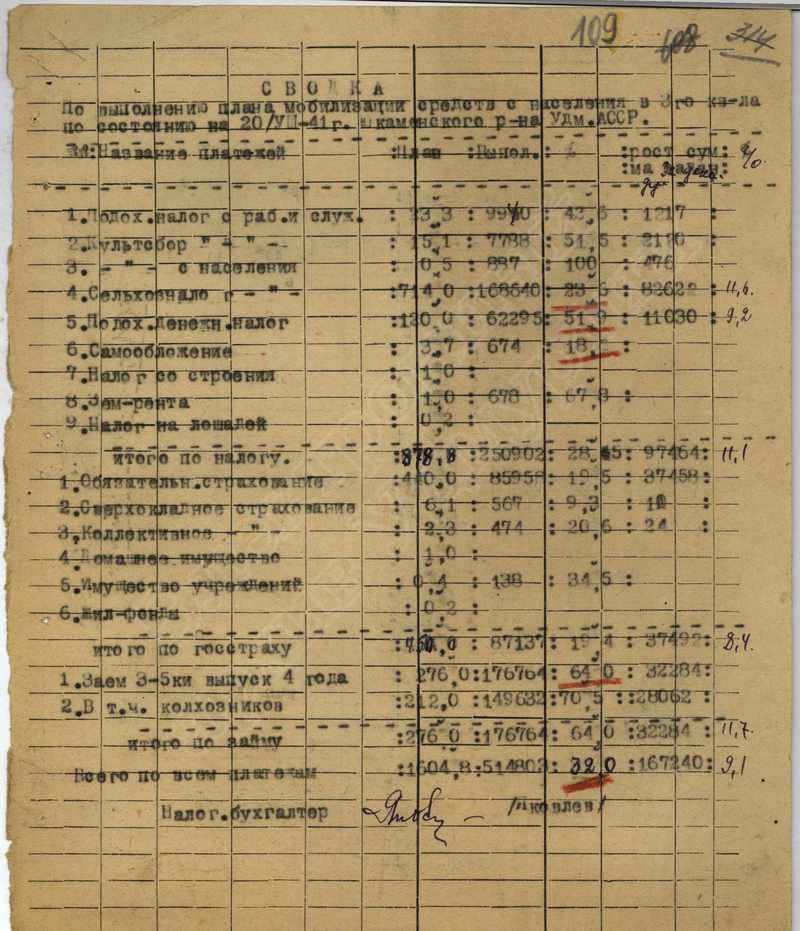 109 108 314
СВОДКА
По выполнению плана мобилизации средств с населения в 3го кв-ла
по состоянию на 20/УП-41г. Шкаменского р-на Удм.АССР.
Название платежей :План :Выпол.: % :рост сум: %
:ма задан:
1.Подох.налог с раб.и служ. : 23,3 : 9940 : 42,6 : 1217 :
2.Культсбор " - " - : 15,1 : 7788 : 51,5 : 2120 :
3. - " - с населения : 0,5 : 887 : 100 : 476
4.Сельхозналог - " - :714,0 :168640: 23,6 : 82622 : 11,6.
5.Подох.Денежн.налог :120,0 : 62295: 51,9 : 11030 : 9,2
6.Самообложение : 3,7 : 674 : 18,2 :
7.Налог со строения : 1,0 :
8.Зем-рента : 1,0 : 678 : 67,8 :
9.Налог на лошадей : 0,2 :
итого по налогу. :878,8 :250902: 28,55: 97464: 11,1
1.Обязательн.страхование :440,0 : 85958: 19,5 : 37458:
2.Сверхокладное страхование : 6,1 : 567 : 9,3 : 10 :
3.Коллективное - " - : 2,3 : 474 : 20,6 : 24 :
4.Домашнее имущество : 1,0 :
5.Имущество учреждений : 0,4 : 138 : 34,5 :
6.Жил-фонды : 0,2 :
итого по госстраху :450,0 : 87137: 19,4 : 37492: 8,4.
1.Заем 3-5ки выпуск 4 года : 276,0:176764: 64,0 : 32284:
2.В т.ч. колхозников :212,0 :149632:70,5 ::28062 :
итого по займу :276,0 :176764: 64,0 :32284 : 11,7.
Всего по всем платежам :1604,8:514803: 32,0 :167240: 9,1
Налог.бухгалтер /Яковлев/